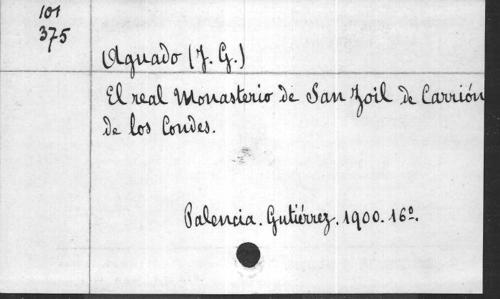 101
375
Aguado (J. G.)
El real Monasterio de San Zoil de Carrión
de los Condes.
Palencia. Gutiérrez. 1900. 16º.